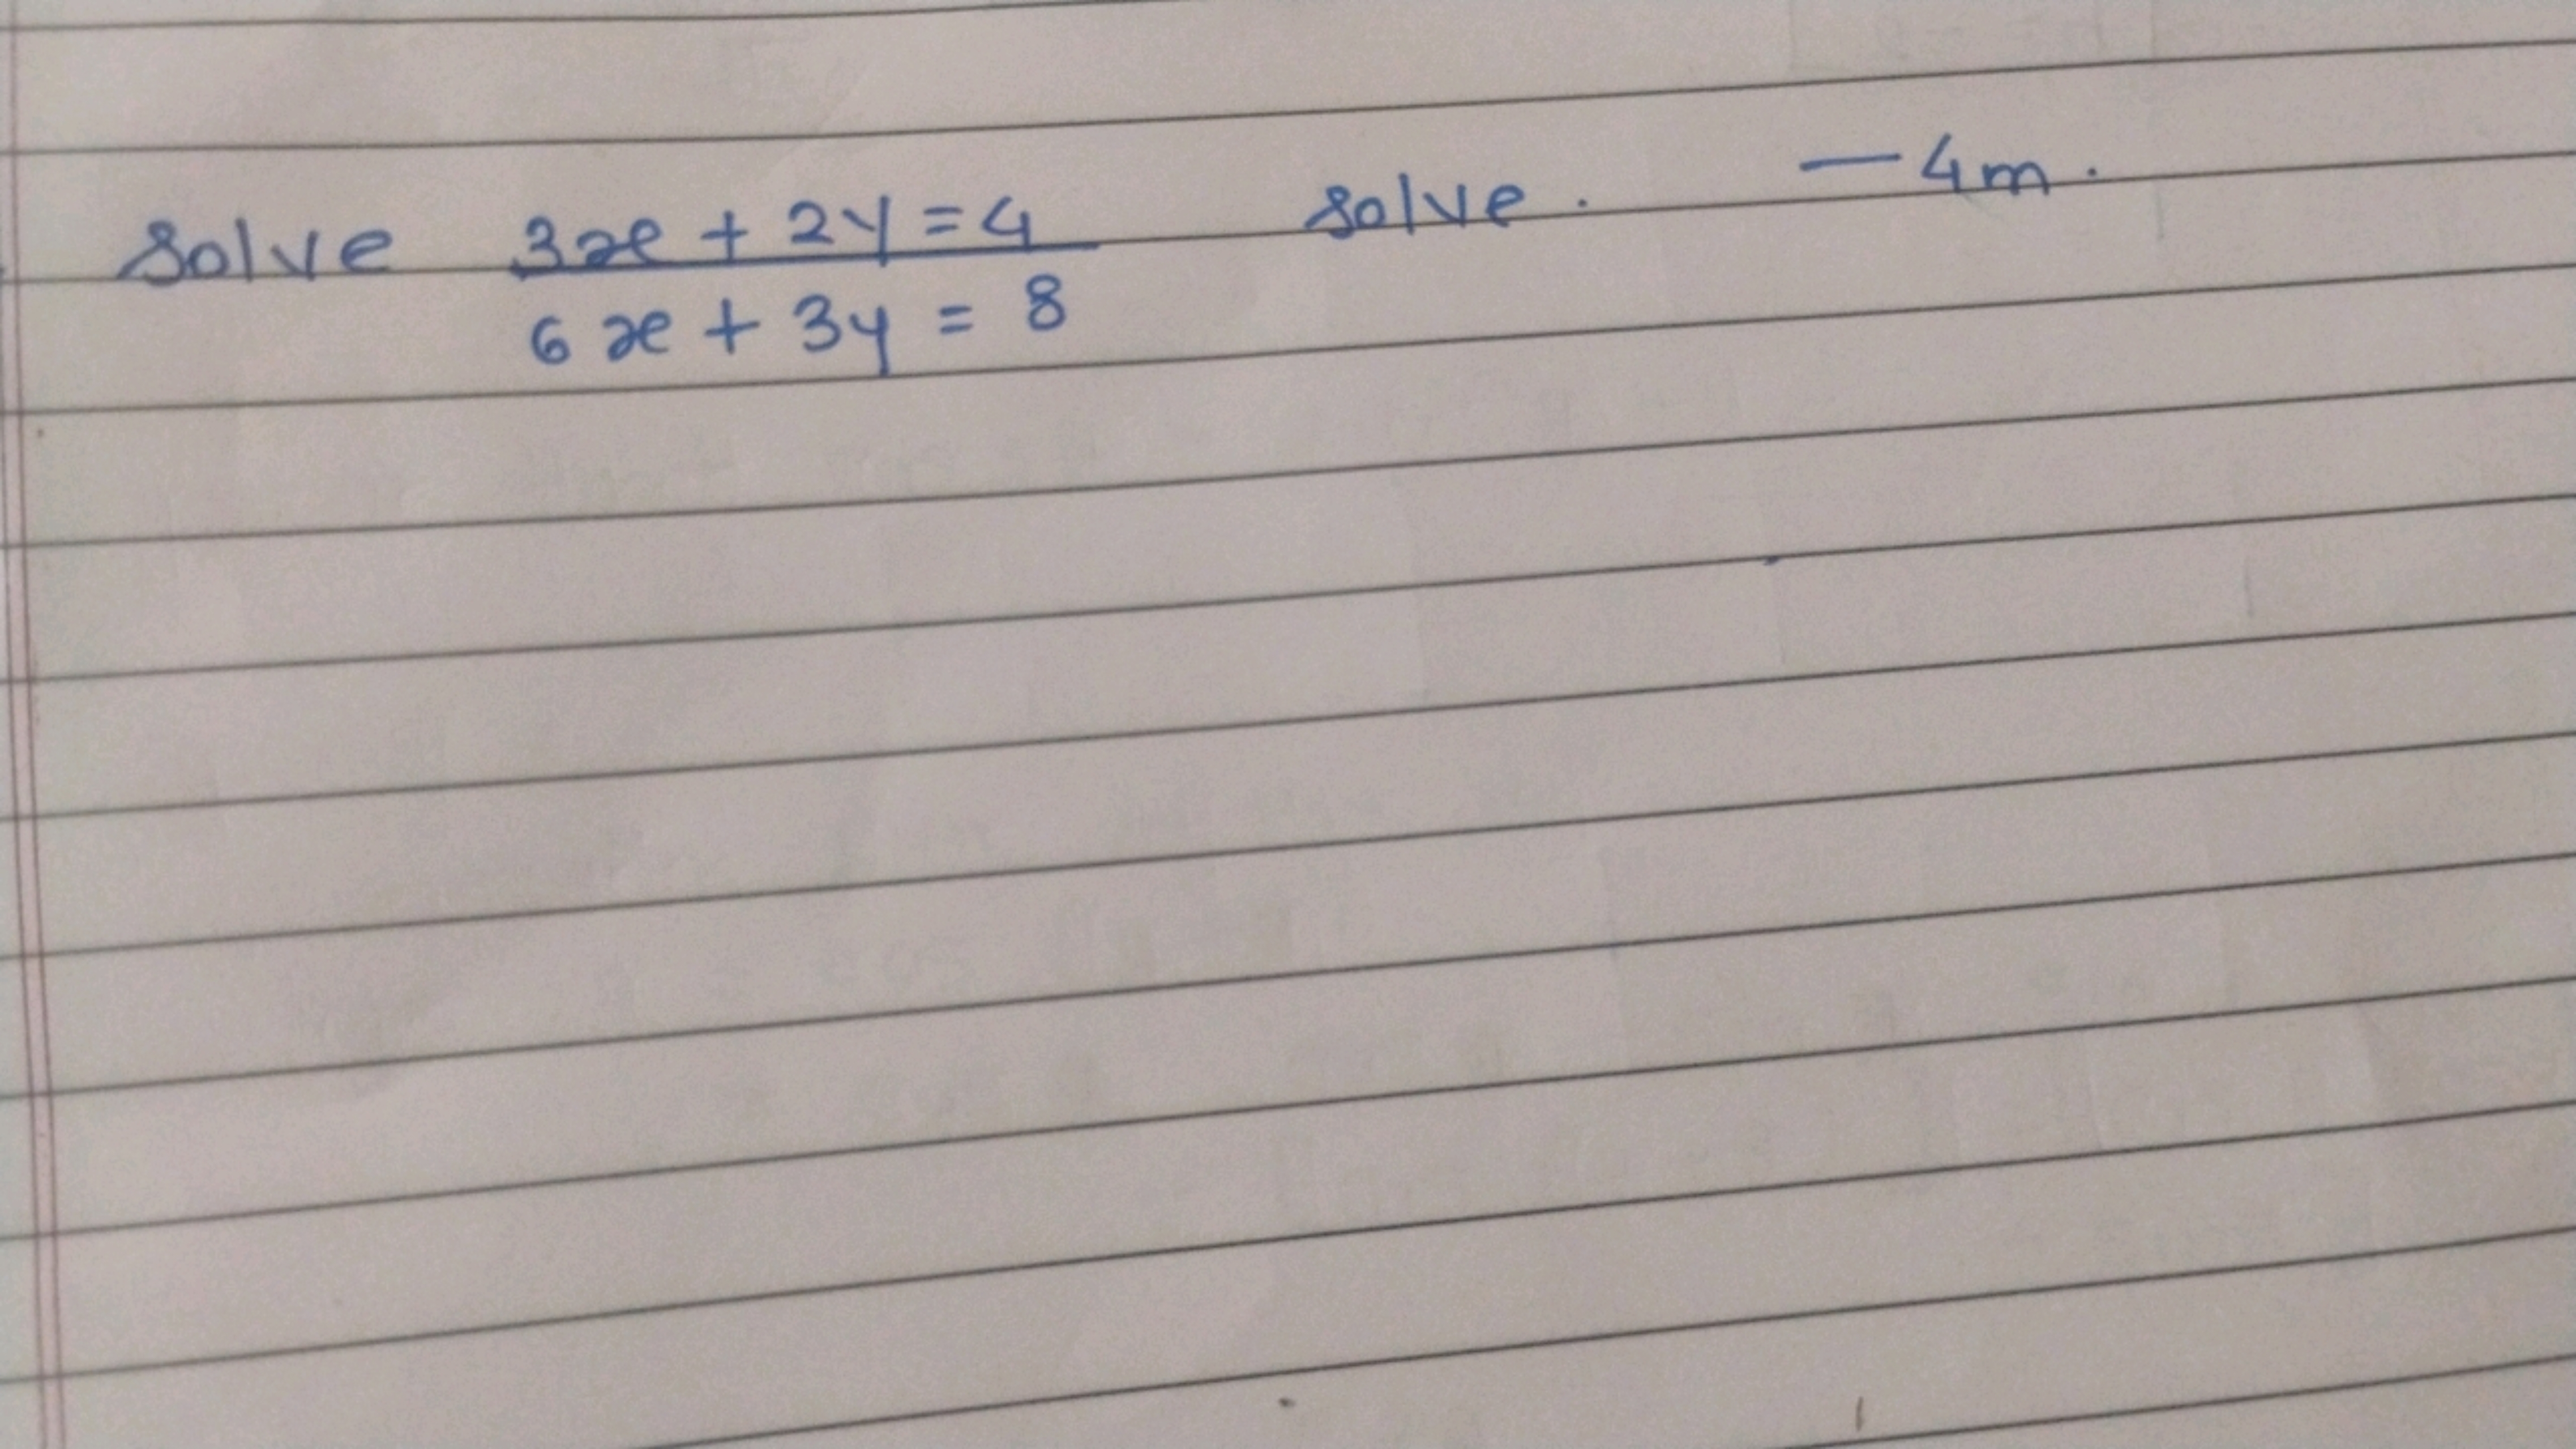 Solve 3x + 2y = 4 solve. — 4m.
6x + 3y = 8